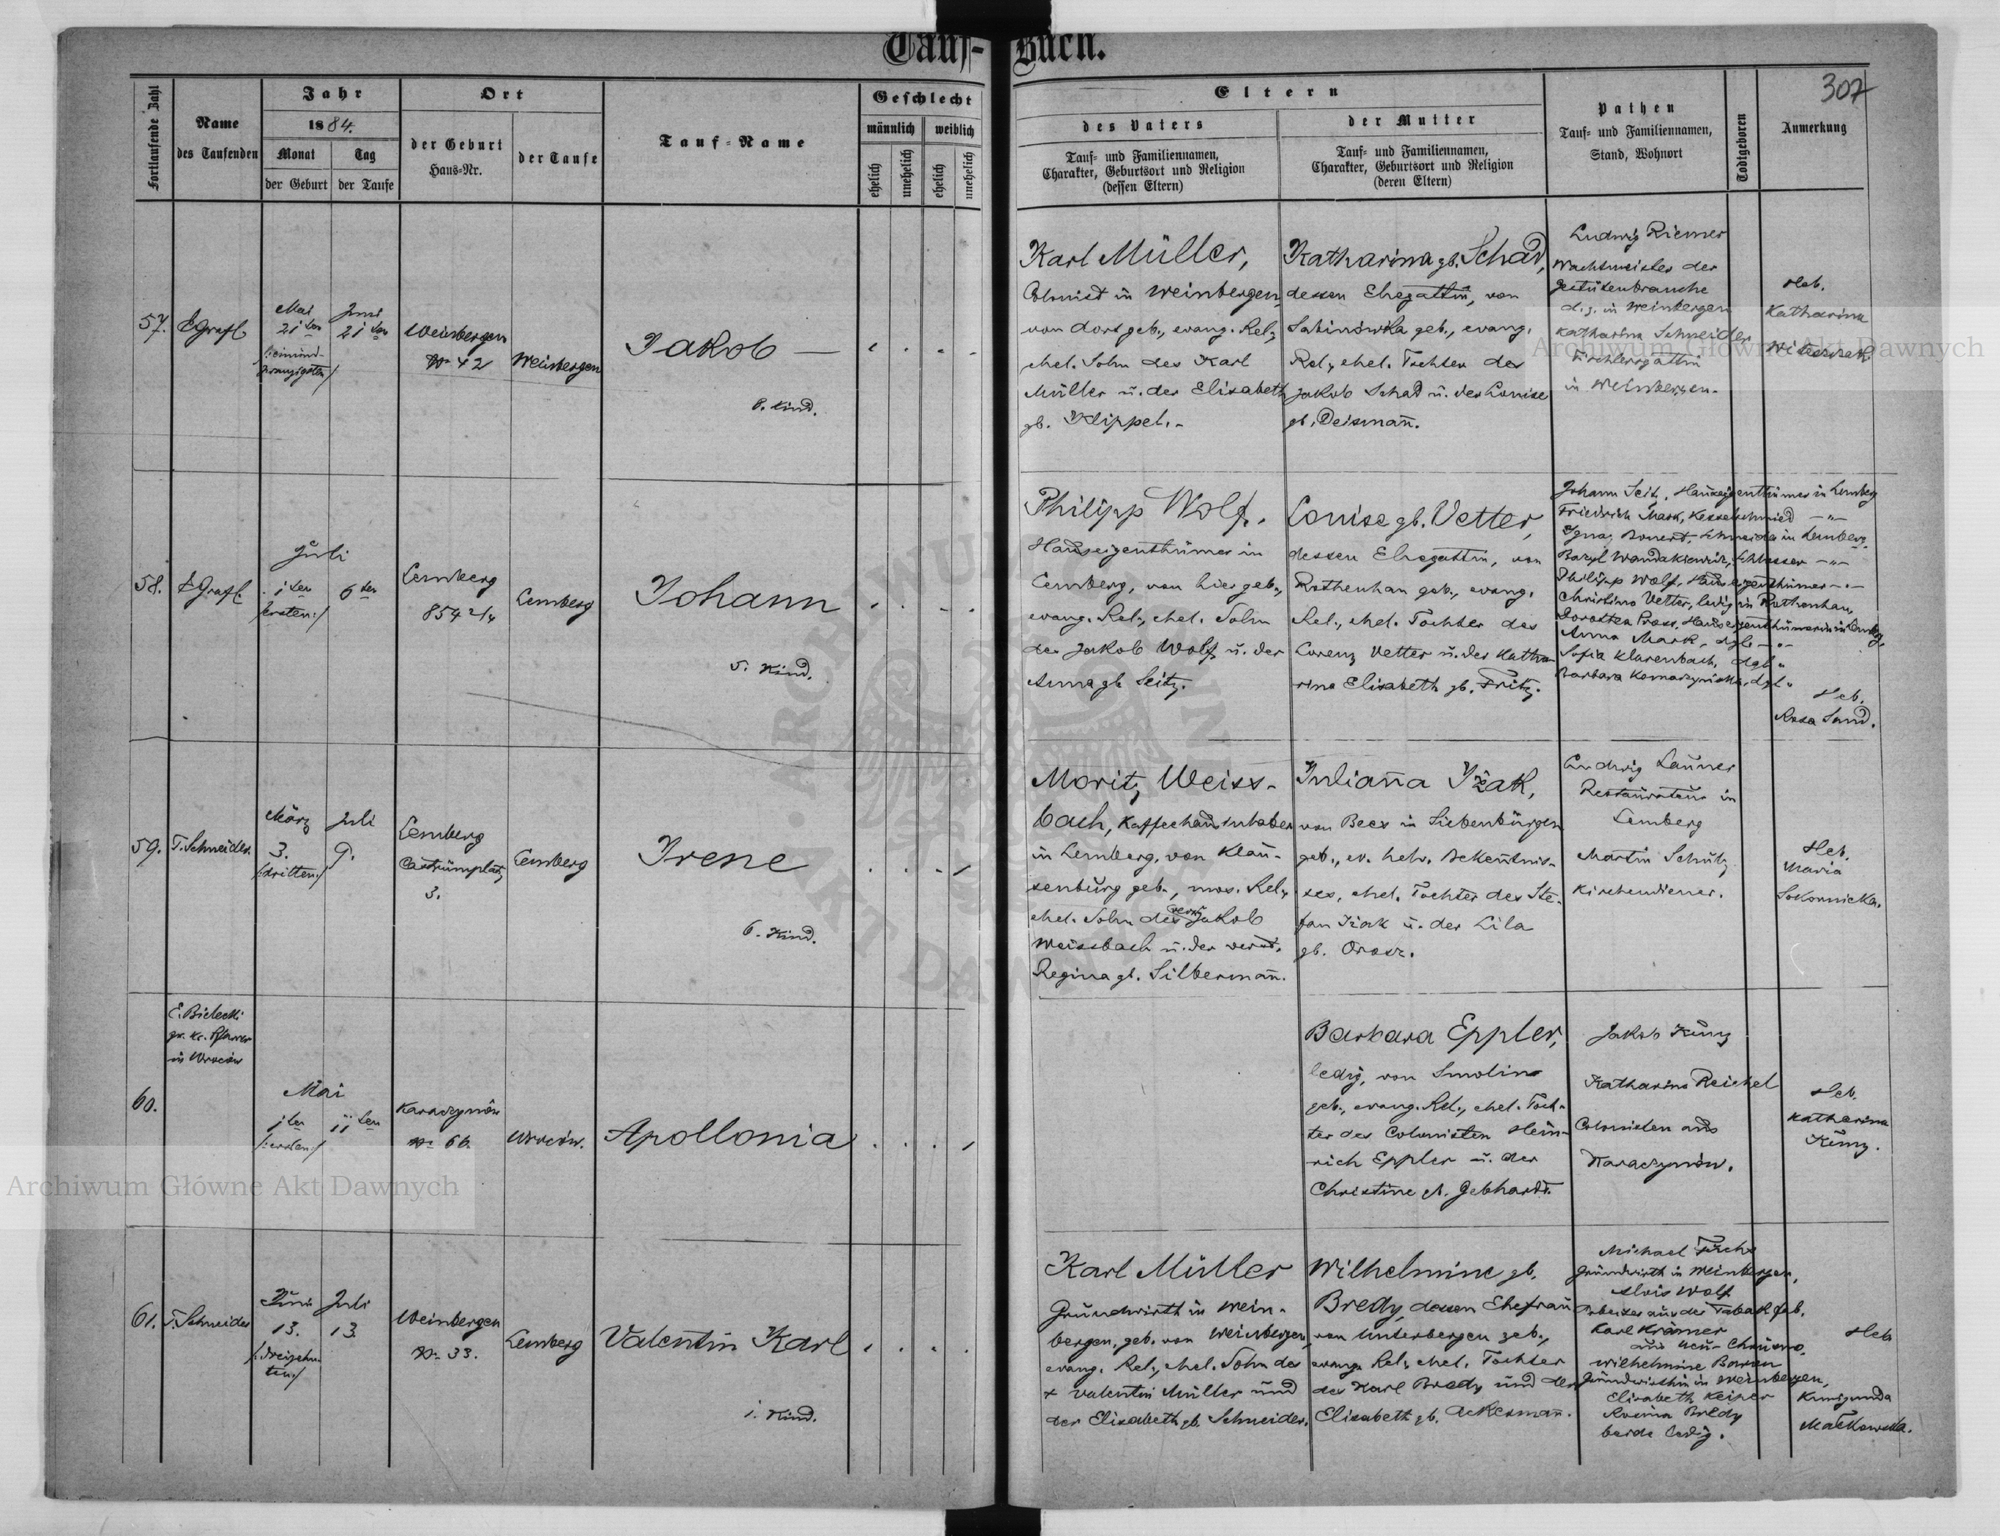 Tauf-Buch.
307
Fortlaufende Zahl
Name
des Taufenden
Jahr
1884.
Monat
Tag
der Geburt
der Taufe
Ort
der Geburt
Haus-Nr.
der Taufe
Tauf-Name
Geschlecht
männlich
weiblich
ehelich
unehelich
ehelich
unehelich
Eltern
des Vaters
Tauf- und Familiennamen,
Charakter, Geburtsort und Religion
(dessen Eltern)
der Mutter
Tauf- und Familiennamen,
Charakter, Geburtsort und Religion
(deren Eltern)
Pathen
Tauf- und Familiennamen,
Stand, Wohnort
Todtgeboren
Anmerkung
57.
Mai
21ten
Juni
21ten
Weinbergen
No 42
Weinbergen
Jakob —
8. Kind.
Karl Müller,
Colonist in Weinbergen,
von dort geb., evang. Rel.,
ehel. Sohn des Karl
Müller u. der Elisabeth
gb. Klippel.-
Katharina gb. Schad,
dessen Ehegattin, von
Sabinówka geb., evang.
Rel., ehel. Tochter des
Jakob Schad u. der Louise
gb. Deismañ.
Ludwig Riemer
Wachtmeister der
Gestütenbranche
d. z. in Weinbergen
Katharina Schneider
in Weinbergen.
Heb.
Katharina
58.
Juli
1ten
6ten
/:ersten:/
Lemberg
854 2/4
Lemberg
Johann
5. Kind.
Philipp Wolf,
Hauseigenthümer in
Lemberg, von hier geb.,
evang. Rel., ehel. Sohn
des Jakob Wolf u. der
Anna gb. Seitz.
Louise gb. Vetter,
dessen Ehegattin, von
Rothenhan geb., evang.
Rel., ehel. Tochter des
Lorenz Vetter u. der Katha-
rina Elisabeth gb. Fritz.
Johann Seitz, Hauseigenthümer in Lemberg
Friedrich Mark, Kesselschmied — " —
Philipp Wolf, Hauseigenthümer — " —
Christine Vetter, ledig in Rothenhan,
Anna Mark, dgl. — " —
Sofia Klarenbach, dgl. "
Heb.
Rosa Sand.
59.
T. Schneider
März
3.
/:dritten:/
Juli
9.
Lemberg
Castrumplatz
3.
Lemberg
Irene
6. Kind.
Moritz Weiss-
bach, Kaffeehausinhaber
in Lemberg, von Klau-
senburg geb., mos. Rel.,
ehel. Sohn des Jakob
Weissbach u. der verst.
Regina gb. Silbermañ.
Juliaña Iżak,
von Becs in Siebenbürgen
geb., ev. helv. Bekentnis-
ses, ehel. Tochter des Ste-
fan Iżak u. der Lila
gb. Orosz.
Ludwig Launer
Restaurateur in
Lemberg
Martin Schütz
Kirchendiener.
Heb.
Maria
Sokornicka.
60.
E. Bielecki
gr. K. Pfarrer
in Wroców
Mai
1ten
11ten
/:ersten:/
Karaczynów
No 66.
Wroców.
Apollonia
Barbara Eppler,
ledig, von Smolin
geb., evang. Rel., ehel. Toch-
ter des Colonisten Hein-
rich Eppler u. der
Christine gb. Gebhardt.
Jakob Kunz
Katharina Reichel
Colonisten aus
Karaczynów.
Heb.
Katharina
Kunz.
61.
T. Schneider
Juni
13.
/:dreizehn-
ten:/
Juli
13.
Weinbergen
No 33.
Lemberg
Valentin Karl
1. Kind.
Karl Müller
Grundwirth in Wein-
bergen, geb. von Weinbergen,
evang. Rel., ehel. Sohn des
+ Valentin Müller und
der Elisabeth gb. Schneider.
Wilhelmine gb.
Bredy, dessen Ehefrau
von Unterbergen geb.,
evang. Rel., ehel. Tochter
des Karl Bredy und der
Elisabeth gb. Ackermañ.
Michael Fuchs
Grundwirth in Weinbergen,
Alois Wolf
Arbeiter aus der Tabakfab.
Karl Krämer
Wilhelmine Baron
Grundwirthin in Weinbergen,
Elisabeth Keiper
Rosina Bredy
beide ledig.
Heb
Kunigunda
Małkowska.
Archiwum Główne Akt Dawnych
Archiwum Główne Akt Dawnych